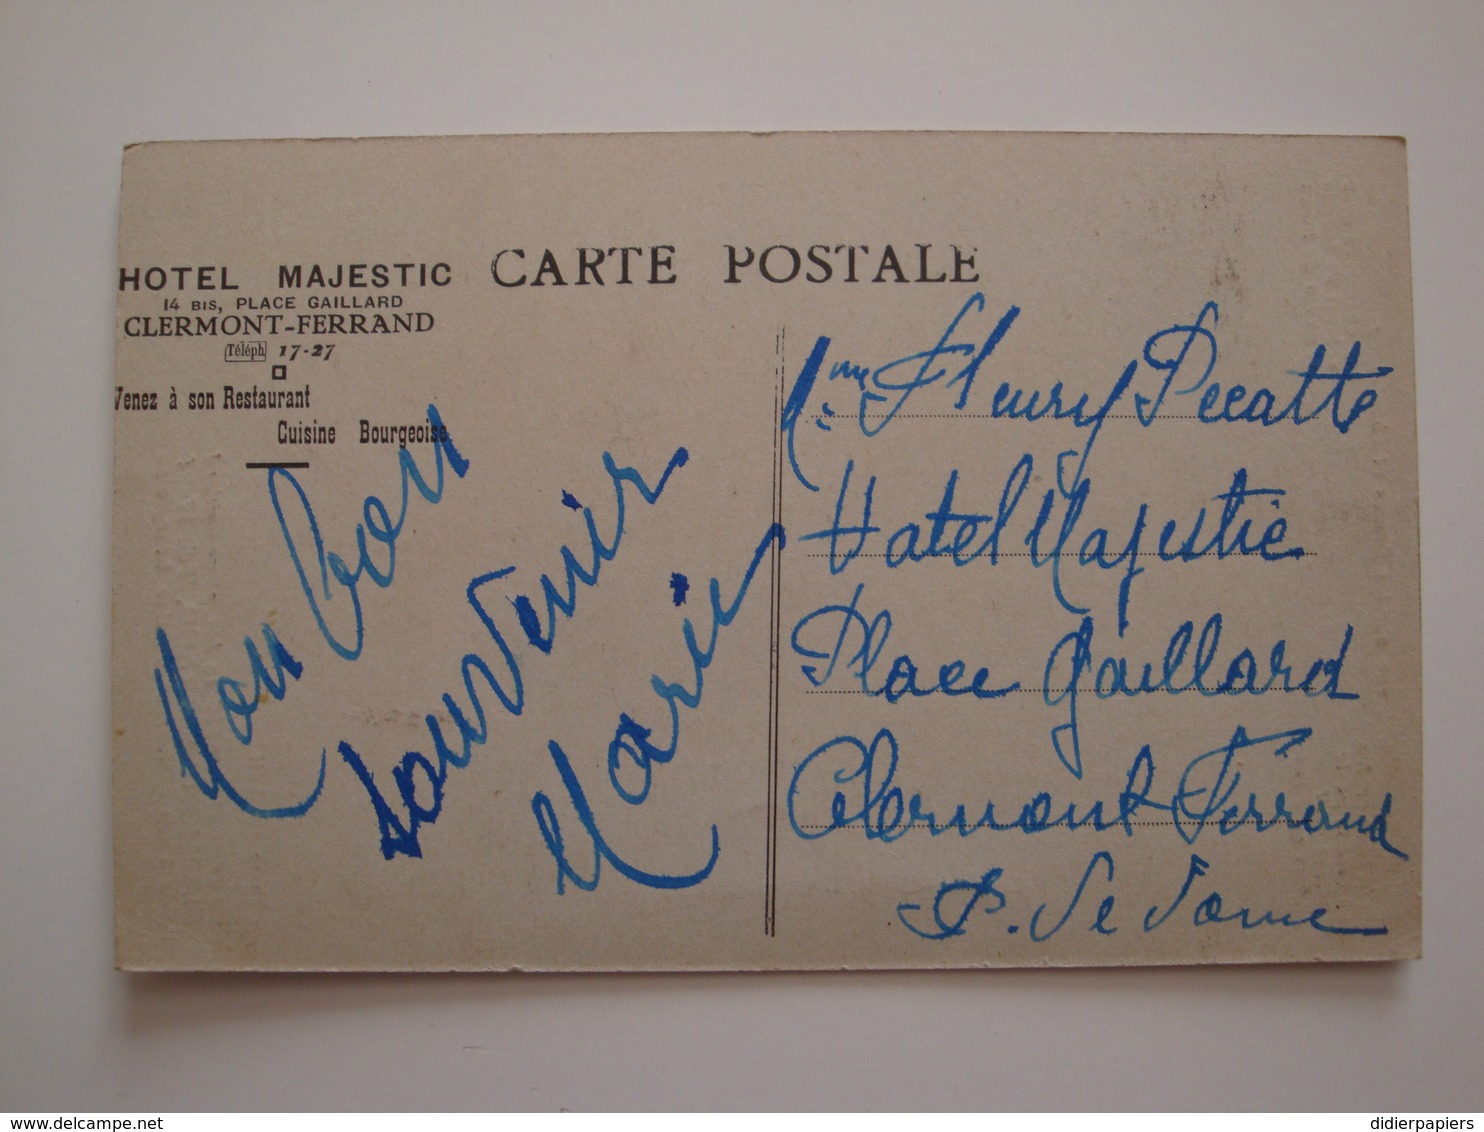 HOTEL MAJESTIC
14 BIS, PLACE GAILLARD
CLERMONT-FERRAND
Téléph 17-27
Venez à son Restaurant
Cuisine Bourgeoise
CARTE POSTALE
Mon bon
souvenir
Marie
Mme Fleury Pecatte
Hotel Majestic
Place Gaillard
Clermont Ferrand
P. de Dome
delcampe.net
didierpapiers